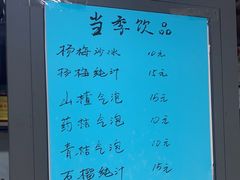 当季饮品
杨梅沙冰 10元
杨梅纯汁 15元
山楂气泡 15元
药桔气泡 10元
青桔气泡 10元
石榴纯汁 15元